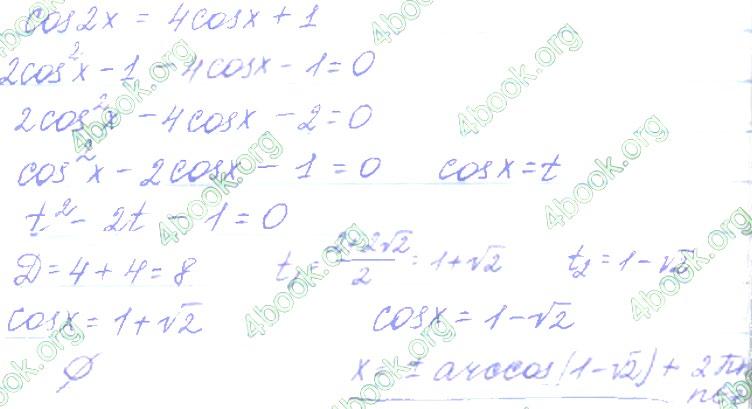 cos2x = 4cosx + 1
2cos²x - 1 - 4cosx - 1 = 0
2cos²x - 4cosx - 2 = 0
cos²x - 2cosx - 1 = 0 cosx = t
t² - 2t - 1 = 0
D = 4 + 4 = 8 t₁ = (2+2√2)/2 = 1+√2 t₂ = 1-√2
cosx = 1+√2 cosx = 1-√2
∅ x = ± arccos(1-√2) + 2πn
4book.org
4book.org
4book.org
4book.org
4book.org
4book.org
4book.org
4book.org
4book.org